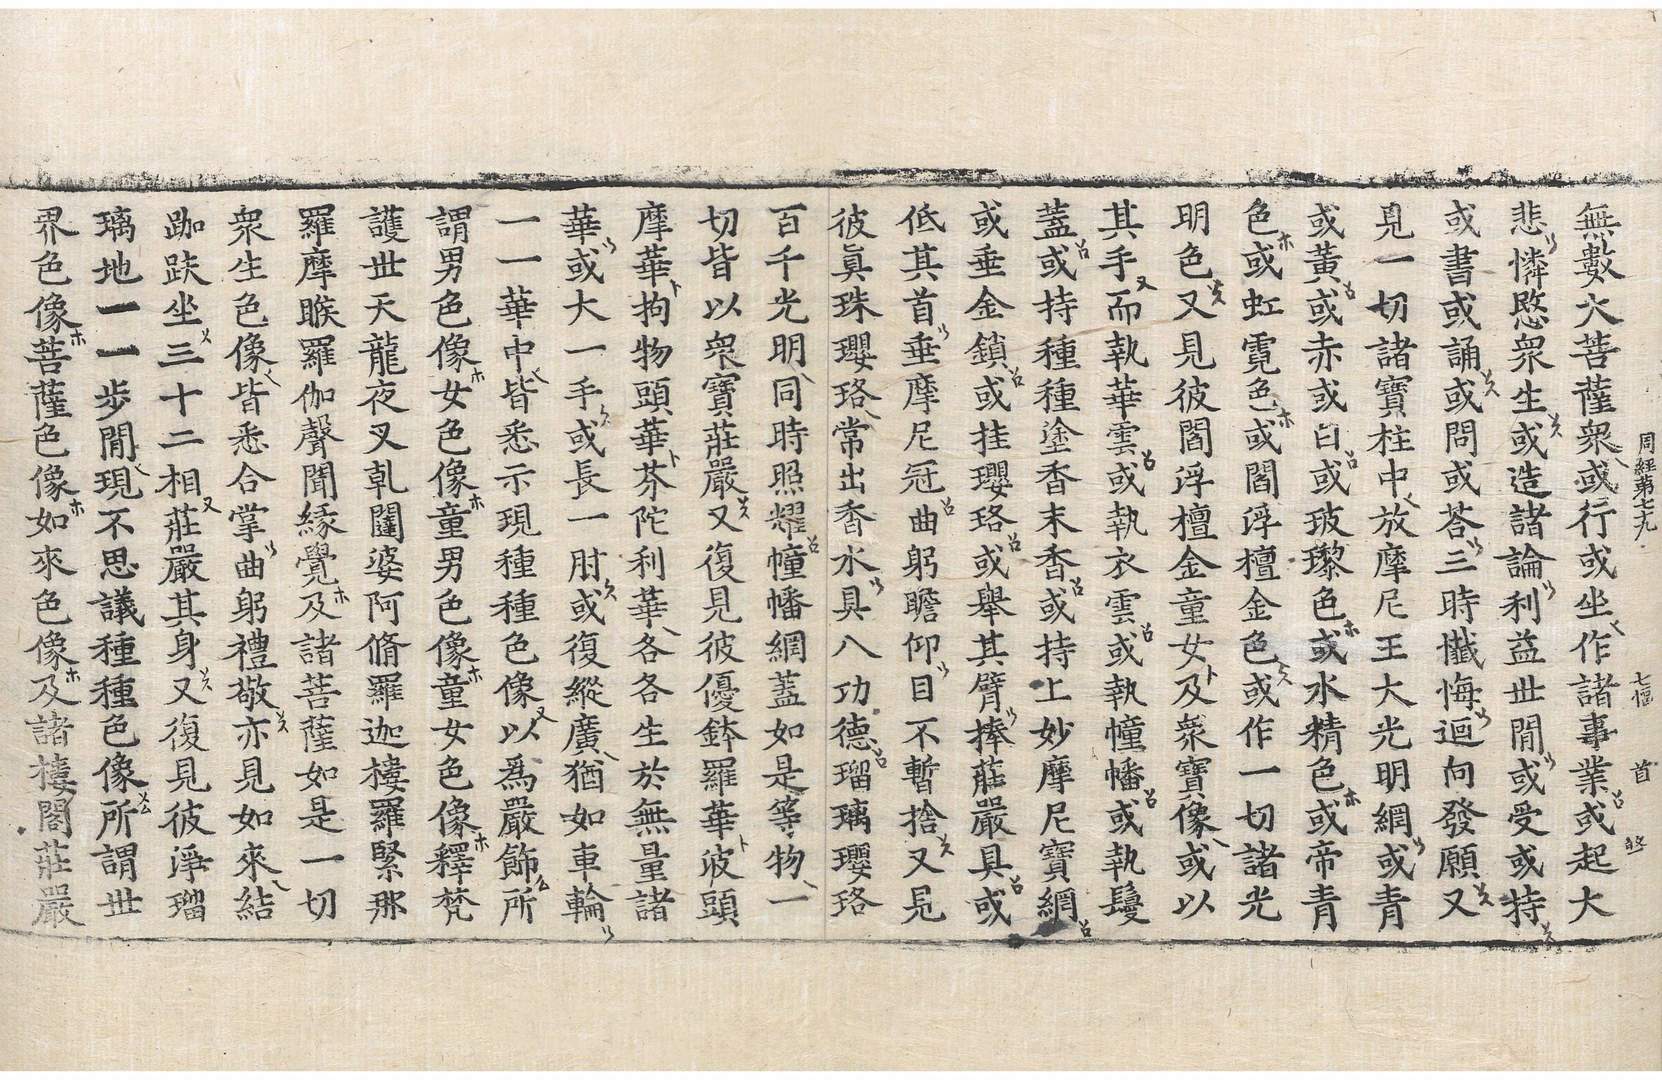 周經第七九 七幅 首 㱏
無數大菩薩衆或行或坐作諸事業或起大
悲憐愍衆生或造諸論利益世閒或受或持
或書或誦或問或荅三時懺悔迴向發願又
見一切諸寶柱中放摩尼王大光明網或青
或黃或赤或白或玻瓈色或水精色或帝青
色或虹霓色或閻浮檀金色或作一切諸光
明色又見彼閻浮檀金童女及衆寶像或以
其手而執華雲或執衣雲或執幢幡或執鬘
蓋或持種種塗香末香或持上妙摩尼寶網
或垂金鎖或挂瓔珞或舉其臂捧莊嚴具或
低其首垂摩尼冠曲躬瞻仰目不暫捨又見
彼眞珠瓔珞常出香水具八功德瑠璃瓔珞
百千光明同時照耀幢幡網蓋如是等物一
切皆以衆寶莊嚴又復見彼優鉢羅華波頭
摩華拘物頭華芬陀利華各各生於無量諸
華或大一手或長一肘或復縱廣猶如車輪
一一華中皆悉示現種種色像以爲嚴飾所
謂男色像女色像童男色像童女色像釋梵
護世天龍夜叉乹闥婆阿脩羅迦樓羅緊那
羅摩睺羅伽聲聞緣覺及諸菩薩如是一切
衆生色像皆悉合掌曲躬禮敬亦見如來結
跏趺坐三十二相莊嚴其身又復見彼淨瑠
璃地一一步閒現不思議種種色像所謂世
界色像菩薩色像如來色像及諸樓閣莊嚴